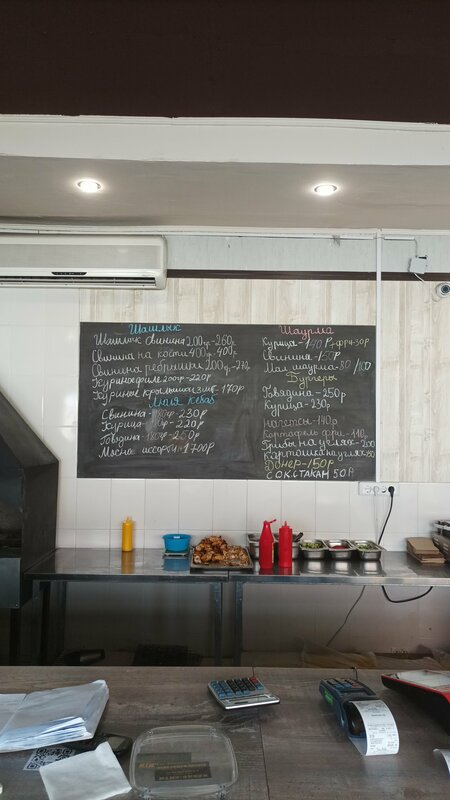 Шашлык
Шашлык свинина 200гр-260р
Свинина на кости 400гр-400р
Свинина ребрышки 200гр-270р
Куриное филе 200гр-220р
Куриные крылышки 3шт-170р
Люля кебаб
Свинина-180гр-230р
Курица-180гр-220р
Говядина-180гр-250р
Мясное ассорти 1700р
Шаурма
Курица-140р+фри-30р
Свинина-150р
Шаурма 80/100
Бургеры
Говядина-250р
Курица-230р
Нагетсы-140р
Картофель фри-110
Грибы на углях-200
Картошка на углях-
Донер-150р
СОК.СТАКАН 50р